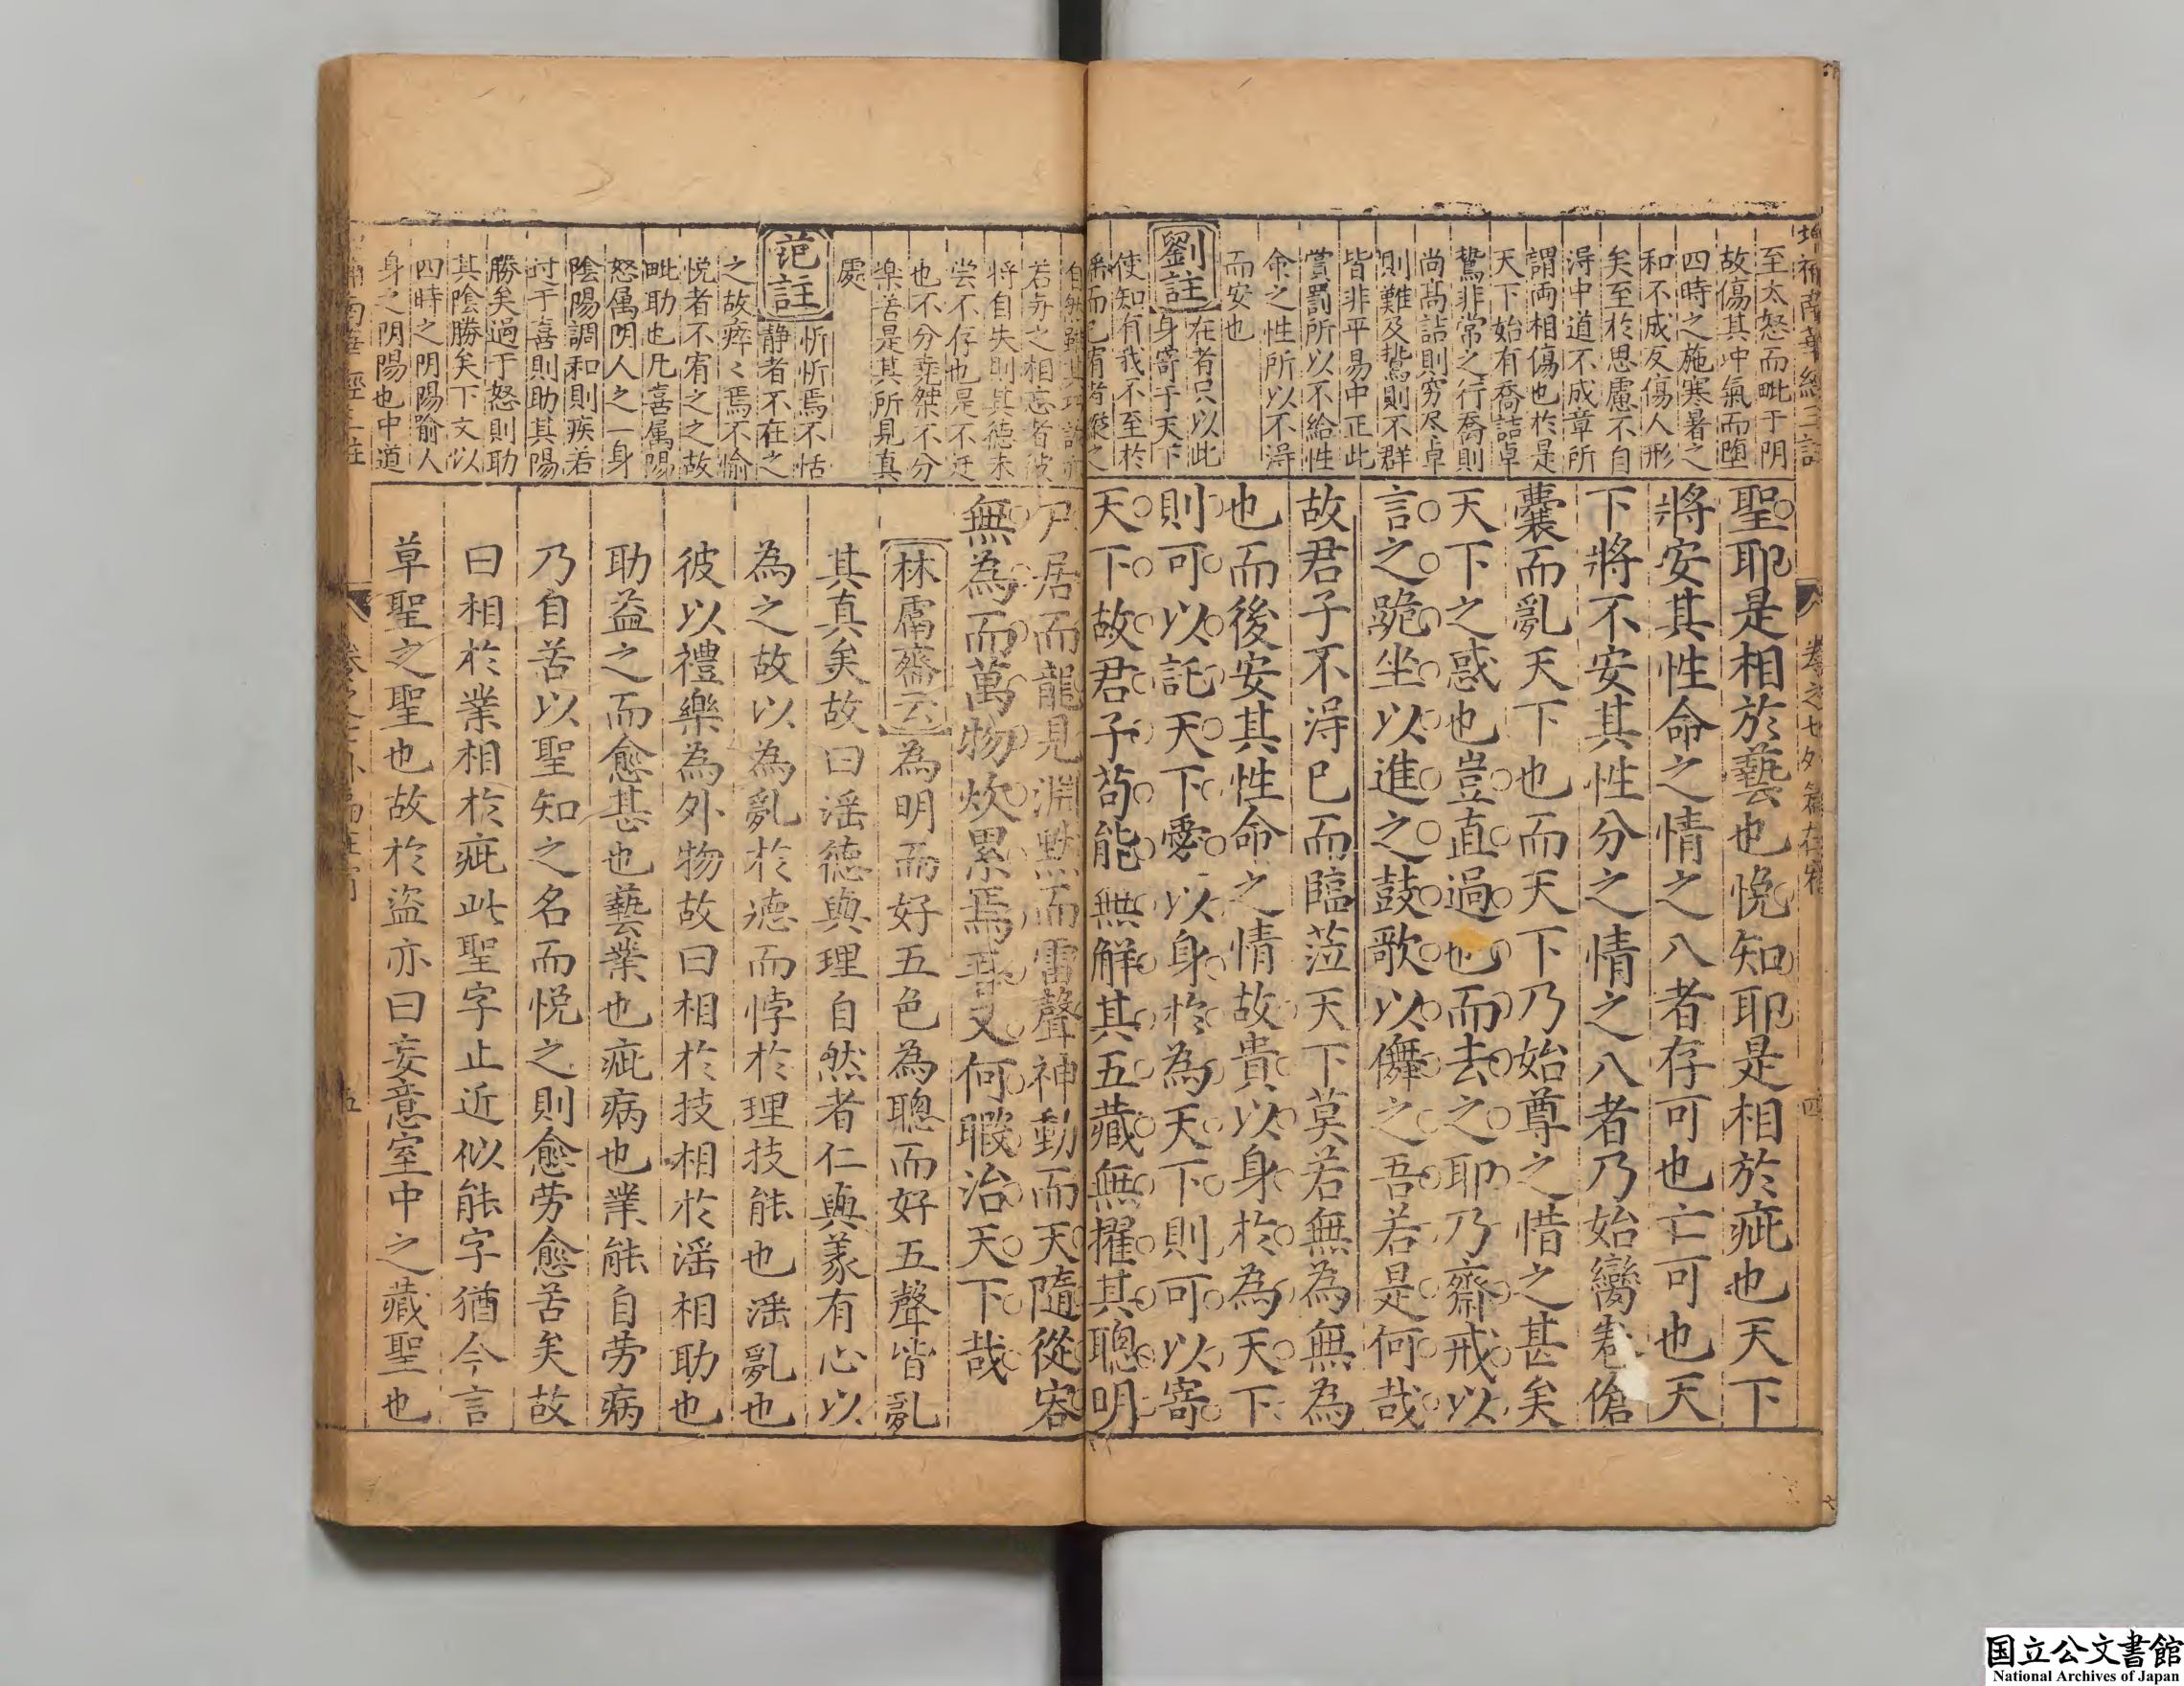 至太怒而毗于阴
故傷其冲氣而墮
四時之施寒暑之
和不成友傷人形
矣至於思慮不自
淂中道不成章所
謂両相傷也於是
天下始有喬詰卓
鷙非常之行喬則
尚髙詰則穷尽卓
則難及鷙則不群
皆非平易中正此
賞罰所以不給性
命之性所以不淂
而安也
劉註
在宥只以此
身寄于天下
使知有我不至於
自然雖其
若舟之相忘者彼
将自失則其德未
尝不存也是不迁
也不分堯桀不分
楽苦是其所見真
處
范註
忻忻焉不恬
静者不在之
之故瘁〻焉不愉
悦者不宥之之故
毗助也凡喜属陽
怒属阴人之一身
陰陽調和則疾若
过于喜則助其陽
勝矣過于怒則助
其陰勝矣下文以
四時之阴陽喻人
身之阴陽也中道
聖耶是相於藝也悅知耶是相於疵也天下
將安其性命之情之八者存可也亡可也天
下將不安其性分之情之八者乃始臠卷傖
囊而亂天下也而天下乃始尊之惜之甚矣
天下之惑也豈直過也而去之耶乃齋戒以
言之跪坐以進之鼓歌以儛之吾若是何哉
故君子不淂已而臨蒞天下莫若無為無為
也而後安其性命之情故貴以身於為天下
則可以託天下愛以身於為天下則可以寄
天下故君子苟能無解其五藏無擢其聰明
尸居而龍見淵黙而雷聲神動而天隨從容
無為而萬物炊累焉吾又何暇治天下哉
林鬳齋云為明而好五色為聰而好五聲皆亂
其真矣故曰滛德與理自然者仁與義有心以
為之故以為亂於德而悖於理技能也滛亂也
彼以禮樂為外物故曰相於技相於滛相助也
助益之而愈甚也藝業也疵病也業能自劳病
乃自苦以聖知之名而悦之則愈劳愈苦矣故
曰相於業相於疵此聖字止近似能字猶今言
草聖之聖也故於盜亦曰妄意室中之藏聖也
卷之七外篇在宥
四
五
国立公文書館
National Archives of Japan